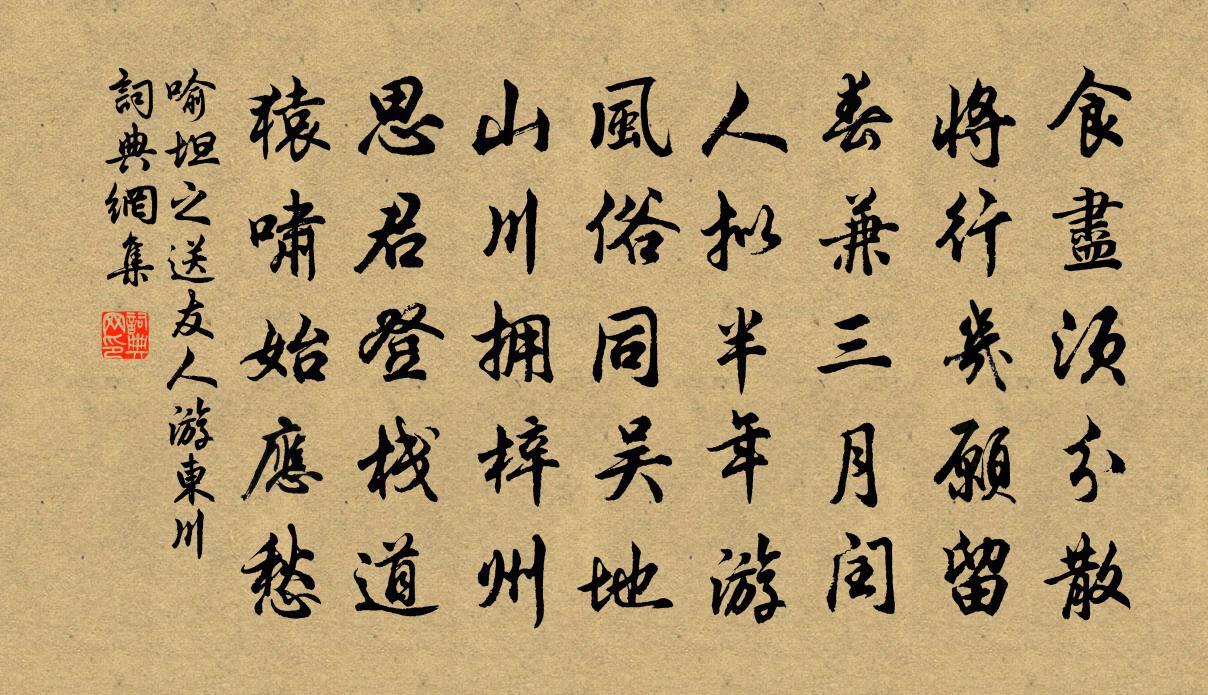 食盡須分散
將行幾願留
春兼三月閏
人擬半年游
風俗同吳地
山川擁梓州
思君登棧道
猿嘯始應愁
喻坦之送友人游東川
詞典網集
詞典網印